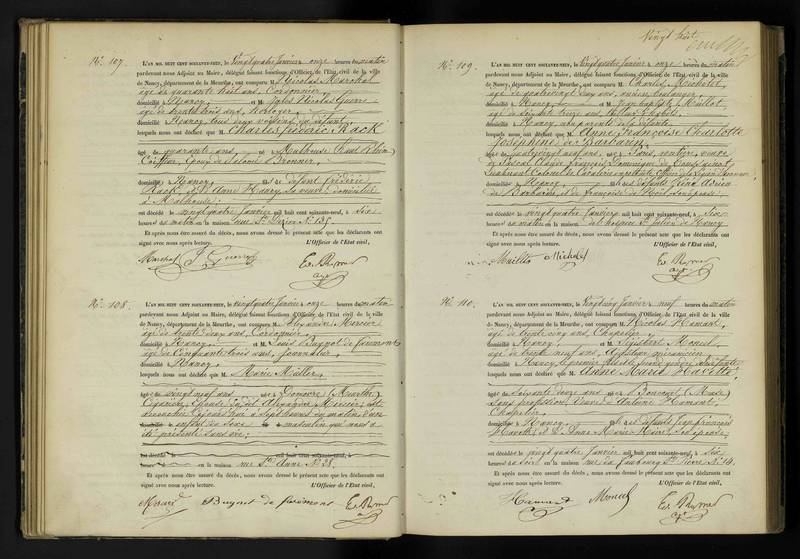 Vingt huit
N.º 107.
L'AN MIL HUIT CENT SOIXANTE-NEUF, le vingtquatre Janvier à onze heures du matin
pardevant nous Adjoint au Maire, délégué faisant fonctions d'Officier de l'Etat civil de la ville
de Nancy, département de la Meurthe, ont comparu M. Nicolas Marchal
âgé de quarante huit ans, Cordonnier,
domicilié à Nancy, et M. Jules Nicolas
âgé de trente trois ans, horloger,
domicilié à Nancy, tous deux voisins du défunt,
lesquels nous ont déclaré que M. Charles frédéric Hack
âgé de quarante ans, né à Mulhouse (Haut Rhin)
Coiffeur, Epoux de Salomé Bronner,
domicilié à Nancy, fils de défunt frédéric
Hack, et d'Anne Mary sa veuve, domiciliée
à Mulhouse;
est décédé le vingtquatre Janvier mil huit cent soixante-neuf, à six
heures du matin en la maison rue St Dizier N.º 135.
Et après nous être assuré du décès, nous avons dressé le présent acte que les déclarants ont
signé avec nous après lecture.
L'Officier de l'Etat civil,
Marchal
N.º 108.
L'AN MIL HUIT CENT SOIXANTE-NEUF, le vingtquatre Janvier à onze heures du matin
pardevant nous Adjoint au Maire, délégué faisant fonctions d'Officier de l'Etat civil de la ville
de Nancy, département de la Meurthe, ont comparu M. Alexandre Mercier
âgé de trente deux ans, Cordonnier,
domicilié à Nancy, et M. Louis Buquot de
âgé de Cinquante trois ans, Journalier,
domicilié à Nancy,
lesquels nous ont déclaré que Marie Müller,
âgée de vingt neuf ans, née à (Meurthe)
Epouse du dit Alexandre Mercier, est
accouchée Cejourd'hui à sept heures du matin, d'un
enfant du sexe masculin qui nous a
été présenté sans vie;
est décédé le mil huit cent soixante-neuf, à
heures en la maison rue Ste Anne N.º 28.
Et après nous être assuré du décès, nous avons dressé le présent acte que les déclarants ont
signé avec nous après lecture.
L'Officier de l'Etat civil,
Mercier
N.º 109.
L'AN MIL HUIT CENT SOIXANTE-NEUF, le vingtquatre Janvier à onze heures du matin
pardevant nous Adjoint au Maire, délégué faisant fonctions d'Officier de l'Etat civil de la ville
de Nancy, département de la Meurthe, ont comparu M. Charles Michelet,
âgé de quatrevingt deux ans, ancien boulanger,
domicilié à Nancy, et M. Jean baptiste Maillot
âgé de soixante treize ans,
domicilié à Nancy, non parents de la défunte,
lesquels nous ont déclaré que M. Anne Françoise Charlotte
Joséphine de Barbarin,
âgée de quatrevingt neuf ans, née à rentière, veuve
de Pascal Claude François Dominique de
Lieutenant Colonel de Cavalerie en retraite, Officier de la Légion d'honneur
domiciliée à Nancy, fille de défunts
de Barbarin, et de françoise de
est décédée le vingtquatre Janvier mil huit cent soixante-neuf, à six
heures du matin en la maison de l'hospice St Julien de Nancy
Et après nous être assuré du décès, nous avons dressé le présent acte que les déclarants ont
signé avec nous après lecture.
L'Officier de l'Etat civil,
Maillot Michelet
N.º 110.
L'AN MIL HUIT CENT SOIXANTE-NEUF, le vingtcinq Janvier à neuf heures du matin
pardevant nous Adjoint au Maire, délégué faisant fonctions d'Officier de l'Etat civil de la ville
de Nancy, département de la Meurthe, ont comparu M. Nicolas Hamant,
âgé de trente cinq ans, Chapelier,
domicilié à Nancy, et M. Sigisbert Moncel
âgé de trente neuf ans, mécanicien,
domicilié à Nancy, le premier fils et le second gendre de la défunte
lesquels nous ont déclaré que Anne Marie Havette,
âgée de soixante deux ans, née à Boncourt, (Meuse)
sans profession, Veuve d'Antoine Hamant,
Chapelier,
domiciliée à Nancy, fille de défunts Jean françois
Havette, et de Anne Marie son épouse;
est décédée le vingt quatre Janvier mil huit cent soixante-neuf, à six
heures du soir en la maison rue du faubourg St Pierre N.º 14.
Et après nous être assuré du décès, nous avons dressé le présent acte que les déclarants ont
signé avec nous après lecture.
L'Officier de l'Etat civil,
Hamant Moncel